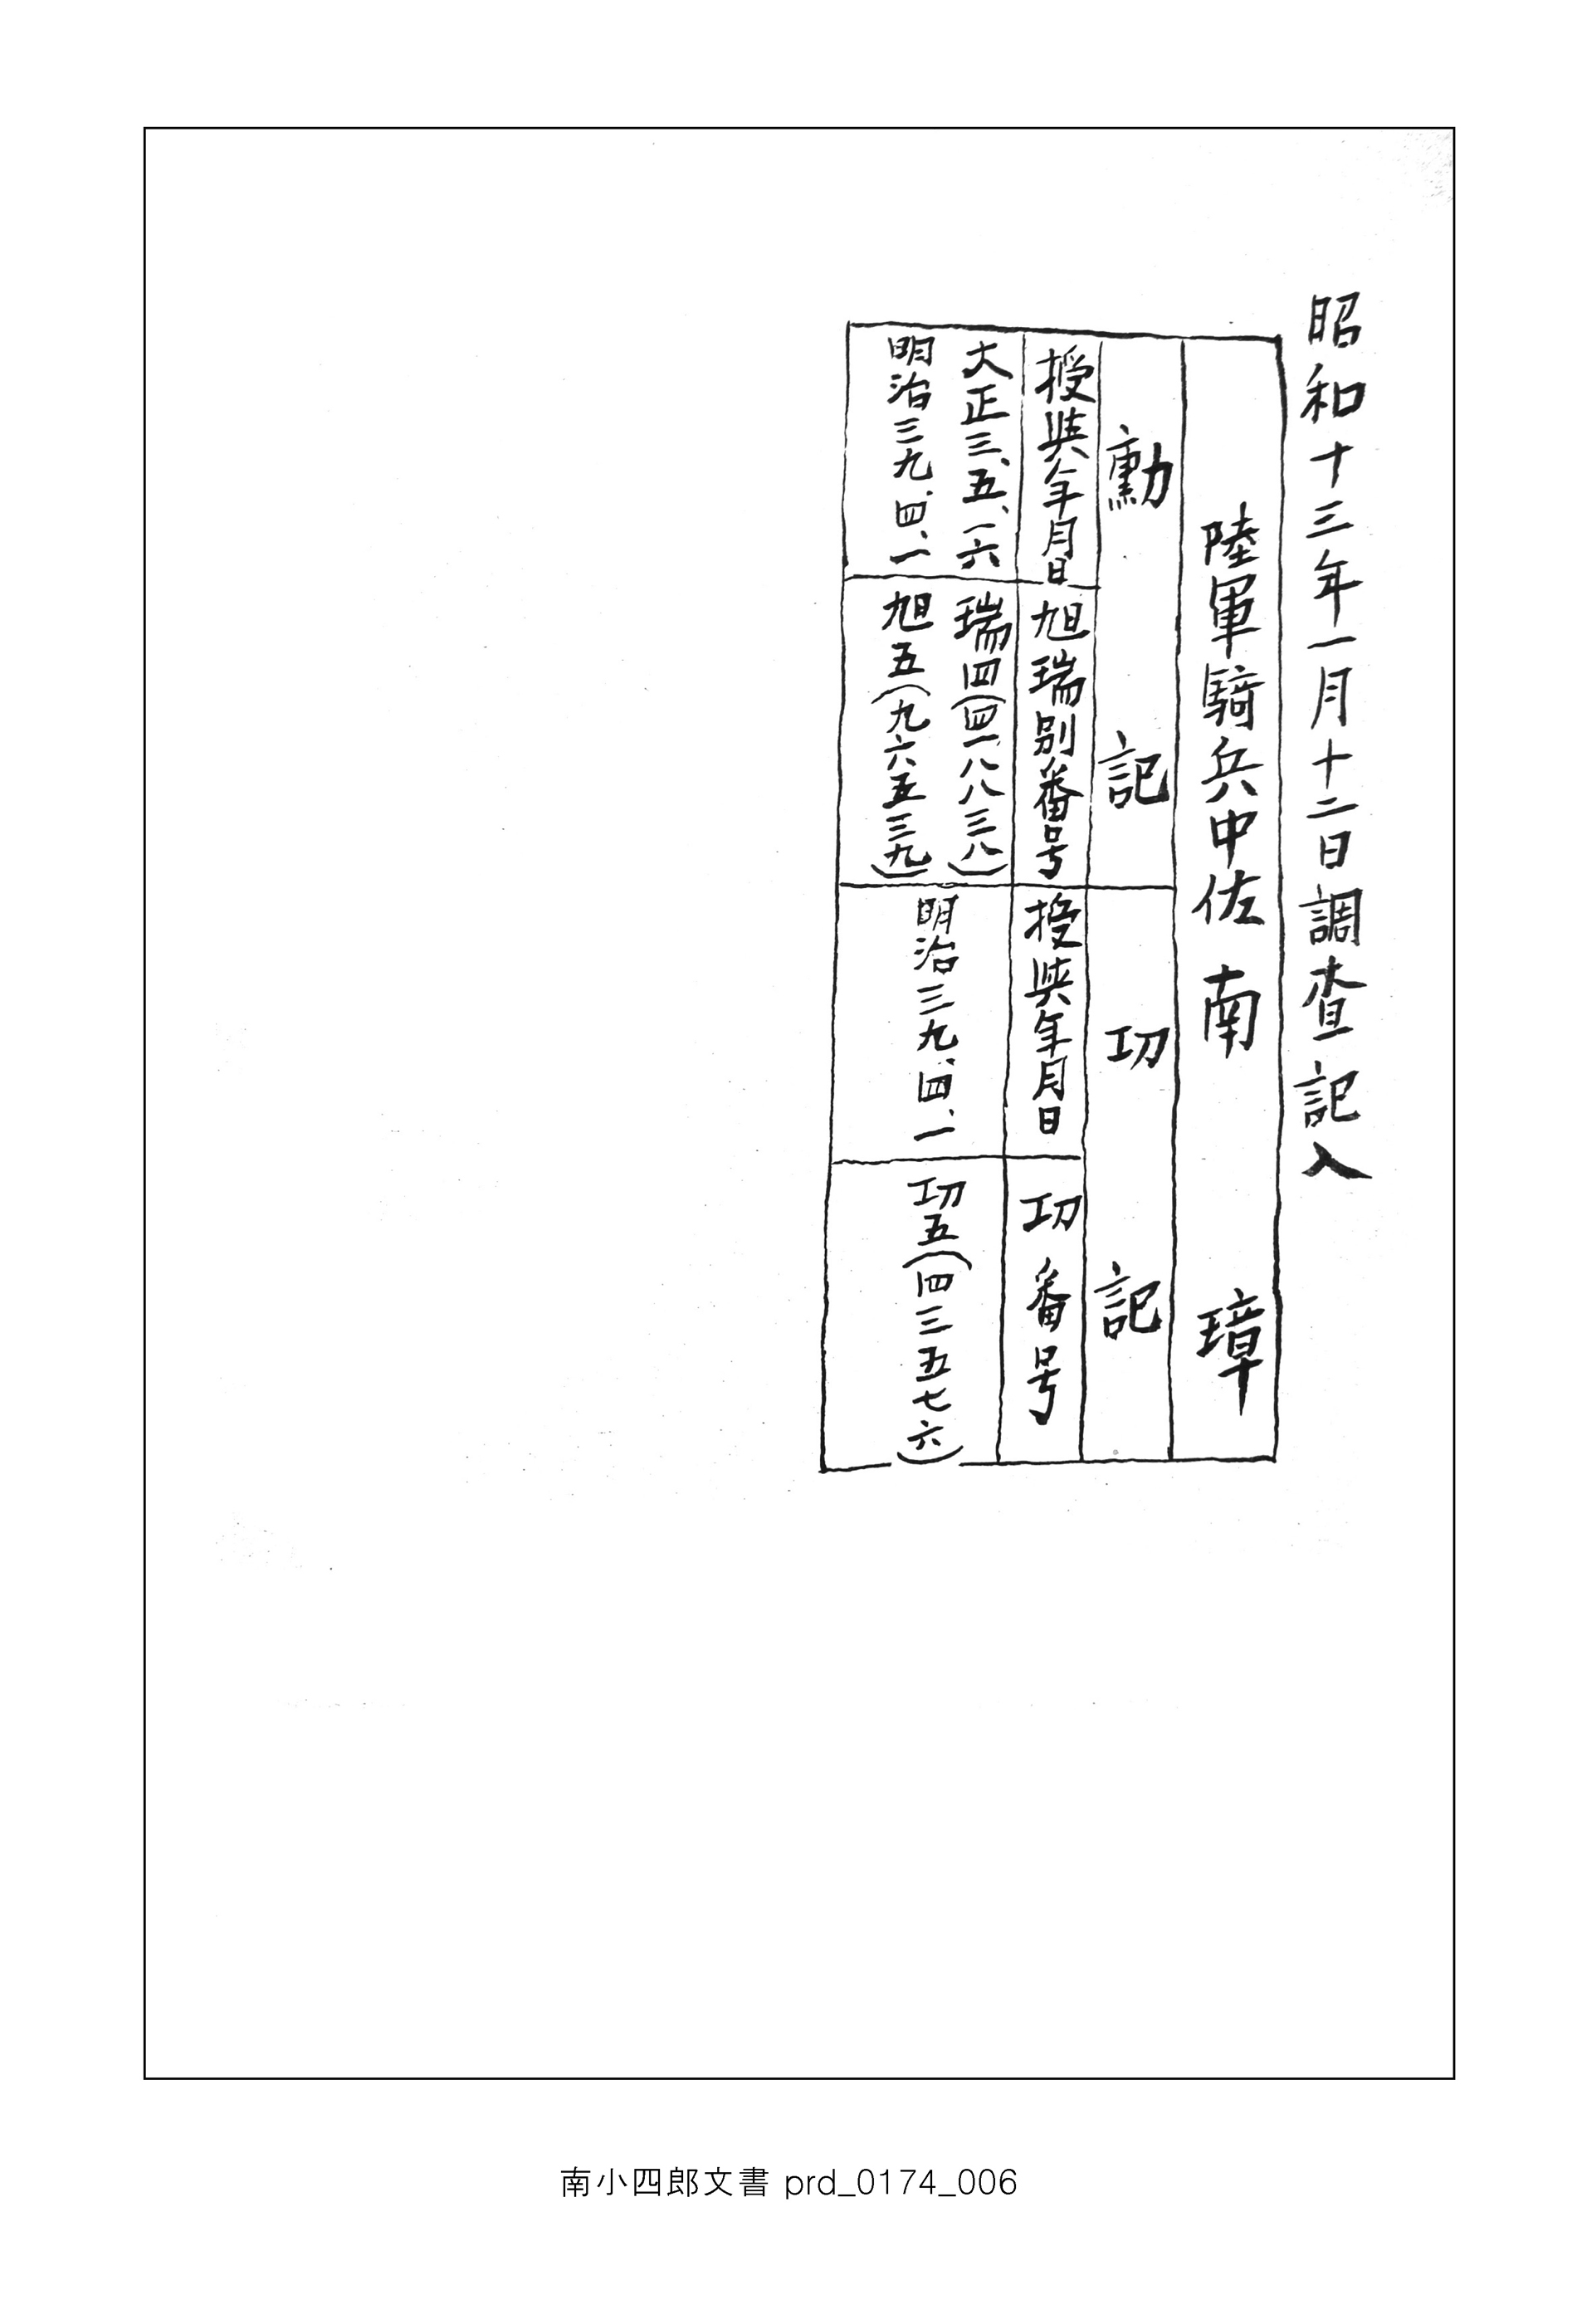 昭和十三年一月十二日調査記入
陸軍騎兵中佐 南 璋
勲記
功記
授與年月日
旭瑞別番号
授與年月日
功番号
大正三、五、一六
瑞四(四一八八三八)
明治三九、四、一
旭五(九六五三九)
明治三九、四、一
功五(四三五七六)
南小四郎文書 prd_0174_006